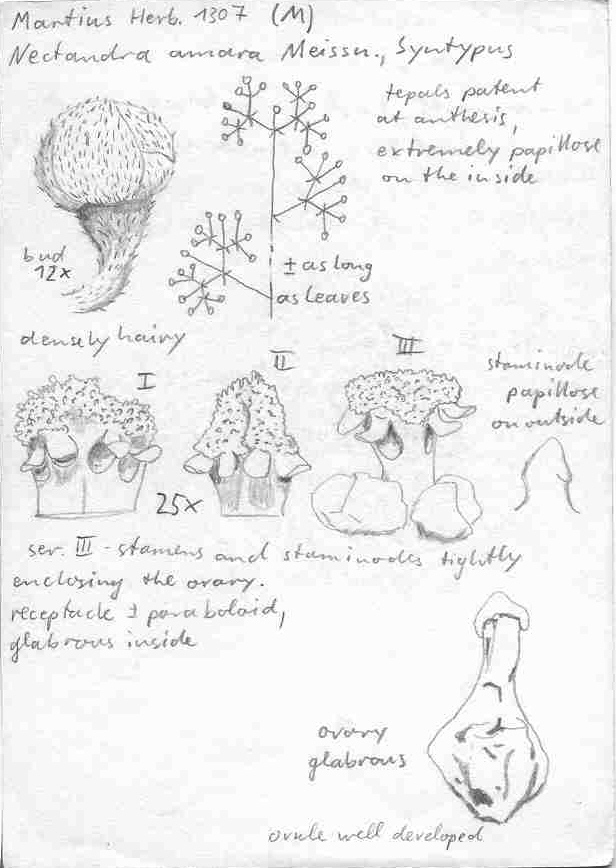 Martius Herb. 1307 (M)
Nectandra amara Meissn., Syntypus
tepals patent
at anthesis,
extremely papillose
on the inside
bud
12x
± as long
as leaves
densely hairy
I
II
III
staminode
papillose
on outside
25x
ser. III - stamens and staminodes tightly
enclosing the ovary.
receptacle ± paraboloid,
glabrous inside
ovary
glabrous
ovule well developed